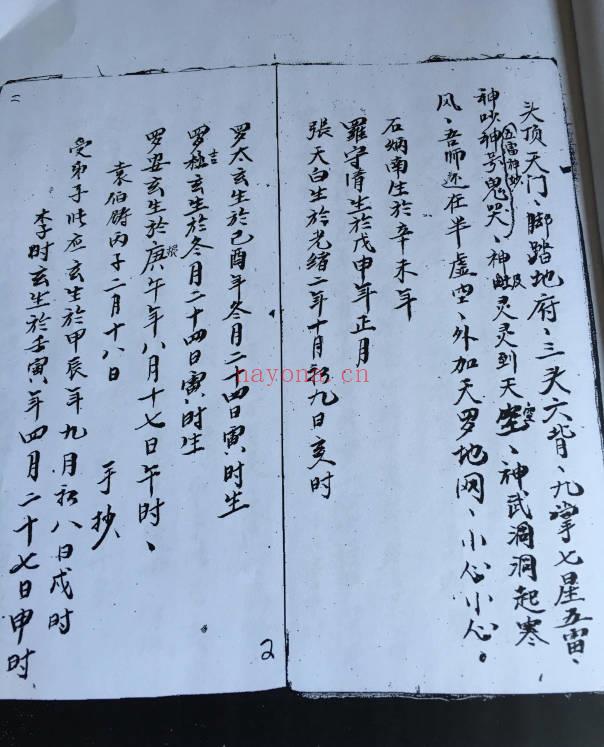 头顶天门、脚踏地府、三头六背、九掌七星五雷、
五雷神妙
神吹神号鬼哭、神灵灵到天空、神武洞洞起寒
空
风、吾师还在半虚空、外加天罗地网、小心小心。
石炳南生於辛未年
羅守清生於戊申年正月
張天白生於光緒二年十月初九日亥时
罗太玄生於己酉年冬月二十四日寅时生
罗极玄生於冬月二十四日寅时生
罗罡玄生於庚午年八月十七日午时、
袁伯铸丙子二月十八日
手抄
受弟子 玄生於甲辰年九月初八日戌时
李时玄生於壬寅年四月二十七日申时、
二
2
nayona.cn